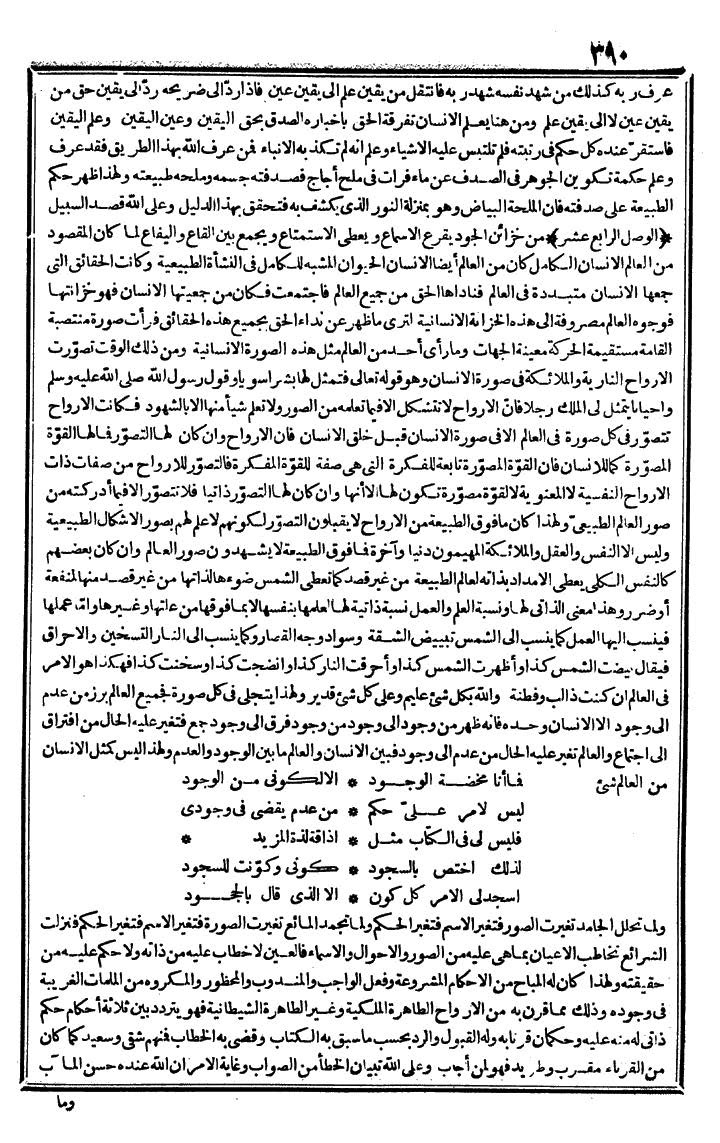 ٣٩٠
عرف ربه كذلك من شهد نفسه شهد ربه فانتقل من يقين علم الى يقين عين فاذا ردّ الى ضريحه ردّ الى يقين حق من
يقين عين لا الى يقين علم ومن هنا يعلم الانسان تفرقة الحق باخباره الصدق بحق اليقين وعين اليقين وعلم اليقين
فاستقرّ عنده كل حكم فى رتبته فلم تلتبس عليه الاشياء وعلم انه لم تكذبه الانباء فمن عرف الله بهذا الطريق فقد عرف
وعلم حكمة تكوين الجوهر فى الصدف عن ماء فرات فى ملح أجاج فصدفته جسمه وملحه طبيعته ولهذا ظهر حكم
الطبيعة على صدفته فان الملحة البياض وهو بمنزلة النور الذى يكشف به فتحقق بهذا الدليل وعلى الله قصد السبيل
﴿الوصل الرابع عشر﴾ من خزائن الجود يقرع الاسماع ويعطى الاستمتاع ويجمع بين القاع واليفاع لما كان المقصود
من العالم الانسان الكامل كان من العالم أيضا الانسان الحيوان المشبه للكامل فى النشأة الطبيعية وكانت الحقائق التى
جمعها الانسان متبددة فى العالم فناداها الحق من جميع العالم فاجتمعت فكان من جمعيتها الانسان فهو خزانتها
فوجوه العالم مصروفة الى هذه الخزانة الانسانية لترى ما ظهر عن نداء الحق بجميع هذه الحقائق فرأت صورة منتصبة
القامة مستقيمة الحركة معينة الجهات وما رأى أحد من العالم مثل هذه الصورة الانسانية ومن ذلك الوقت تصوّرت
الارواح النارية والملائكة فى صورة الانسان وهو قوله تعالى فتمثل لها بشرا سويا وقول رسول الله صلى الله عليه وسلم
واحيانا يتمثل لى الملك رجلا فانّ الارواح لا تتشكل الا فيما تعلمه من الصور ولا تعلم شيأ منها الا بالشهود فكانت الارواح
تتصوّر فى كل صورة فى العالم الا فى صورة الانسان قبل خلق الانسان فان الارواح وان كان لها التصوّر فما لها القوّة
المصوّرة كما للانسان فان القوّة المصوّرة تابعة للفكرة التى هى صفة للقوة المفكرة فالتصوّر للارواح من صفات ذات
الارواح النفسية لا المعنوية لا لقوة مصوّرة تكون لها الا أنها وان كان لها التصوّر ذاتيا فلا تتصوّر الا فيما أدركته من
صور العالم الطبيعىّ ولهذا كان ما فوق الطبيعة من الارواح لا يقبلون التصوّر لكونهم لا علم لهم بصور الاشكال الطبيعية
وليس الا النفس والعقل والملائكة المهيمون دنيا وآخرة فما فوق الطبيعة لا يشهدون صور العالم وان كان بعضهم
كالنفس الكلى يعطى الامداد بذاته لعالم الطبيعة من غير قصد كما تعطى الشمس ضوءها لذاتها من غير قصد منها لمنفعة
أو ضرر وهذا معنى الذاتى لها ونسبة العلم والعمل نسبة ذاتية لها لعلمها بنفسها لا بما فوقها من علتها وغيرها وانّ عملها
فينسب اليها العمل كما ينسب الى الشمس تبييض الشقة وسواد وجه القصار وكما ينسب الى النار التسخين والاحراق
فيقال بيضت الشمس كذا وأظهرت الشمس كذا وأحرقت النار كذا وانضجت كذا وسخنت كذا فهكذا هو الامر
فى العالم ان كنت ذا لب وفطنة والله بكل شئ عليم وعلى كل شئ قدير ولهذا يتجلى فى كل صورة فجميع العالم برز من عدم
الى وجود الا الانسان وحده فانه ظهر من وجود الى وجود من وجود فرق الى وجود جمع فتغير عليه الحال من افتراق
الى اجتماع والعالم تغير عليه الحال من عدم الى وجود فبين الانسان والعالم ما بين الوجود والعدم ولهذا ليس كمثل الانسان
من العالم شئ فما أنا مخضة الوجود * الا لكونى من الوجود
ليس لامر علىّ حكم * من عدم يقضى فى وجودى
فليس لى فى الكتاب مثل * اذاقة لذة المزيد *
لذلك اختص بالسجود * كونى وكوّنت للسجود
اسجد لى الامر كل كون * الا الذى قال بالجحود
ولما تحلل الجامد تغيرت الصور فتغير الاسم فتغير الحكم ولما تجمد المائع تغيرت الصورة فتغير الاسم فتغير الحكم فنزلت
الشرائع تخاطب الاعيان بما هى عليه من الصور والاحوال والاسماء فالعين لا خطاب عليه من ذاته ولا حكم عليه من
حقيقته ولهذا كان له المباح من الاحكام المشروعة وفعل الواجب والمندوب والمحظور والمكروه من الملمات الغريبة
فى وجوده وذلك مما قرن به من الارواح الطاهرة الملكية وغير الطاهرة الشيطانية فهو يتردد بين ثلاثة أحكام حكم
ذاتى له منه عليه وحكمان قرنا به وله القبول والرد بحسب ما سبق به الكتاب وقضى به الخطاب فمنهم شقى وسعيد كما كان
من القرناء مقرب وطريد فهو لمن أجاب وعلى الله تبيان الخطأ من الصواب وغاية الامر ان الله عنده حسن المآب
وما